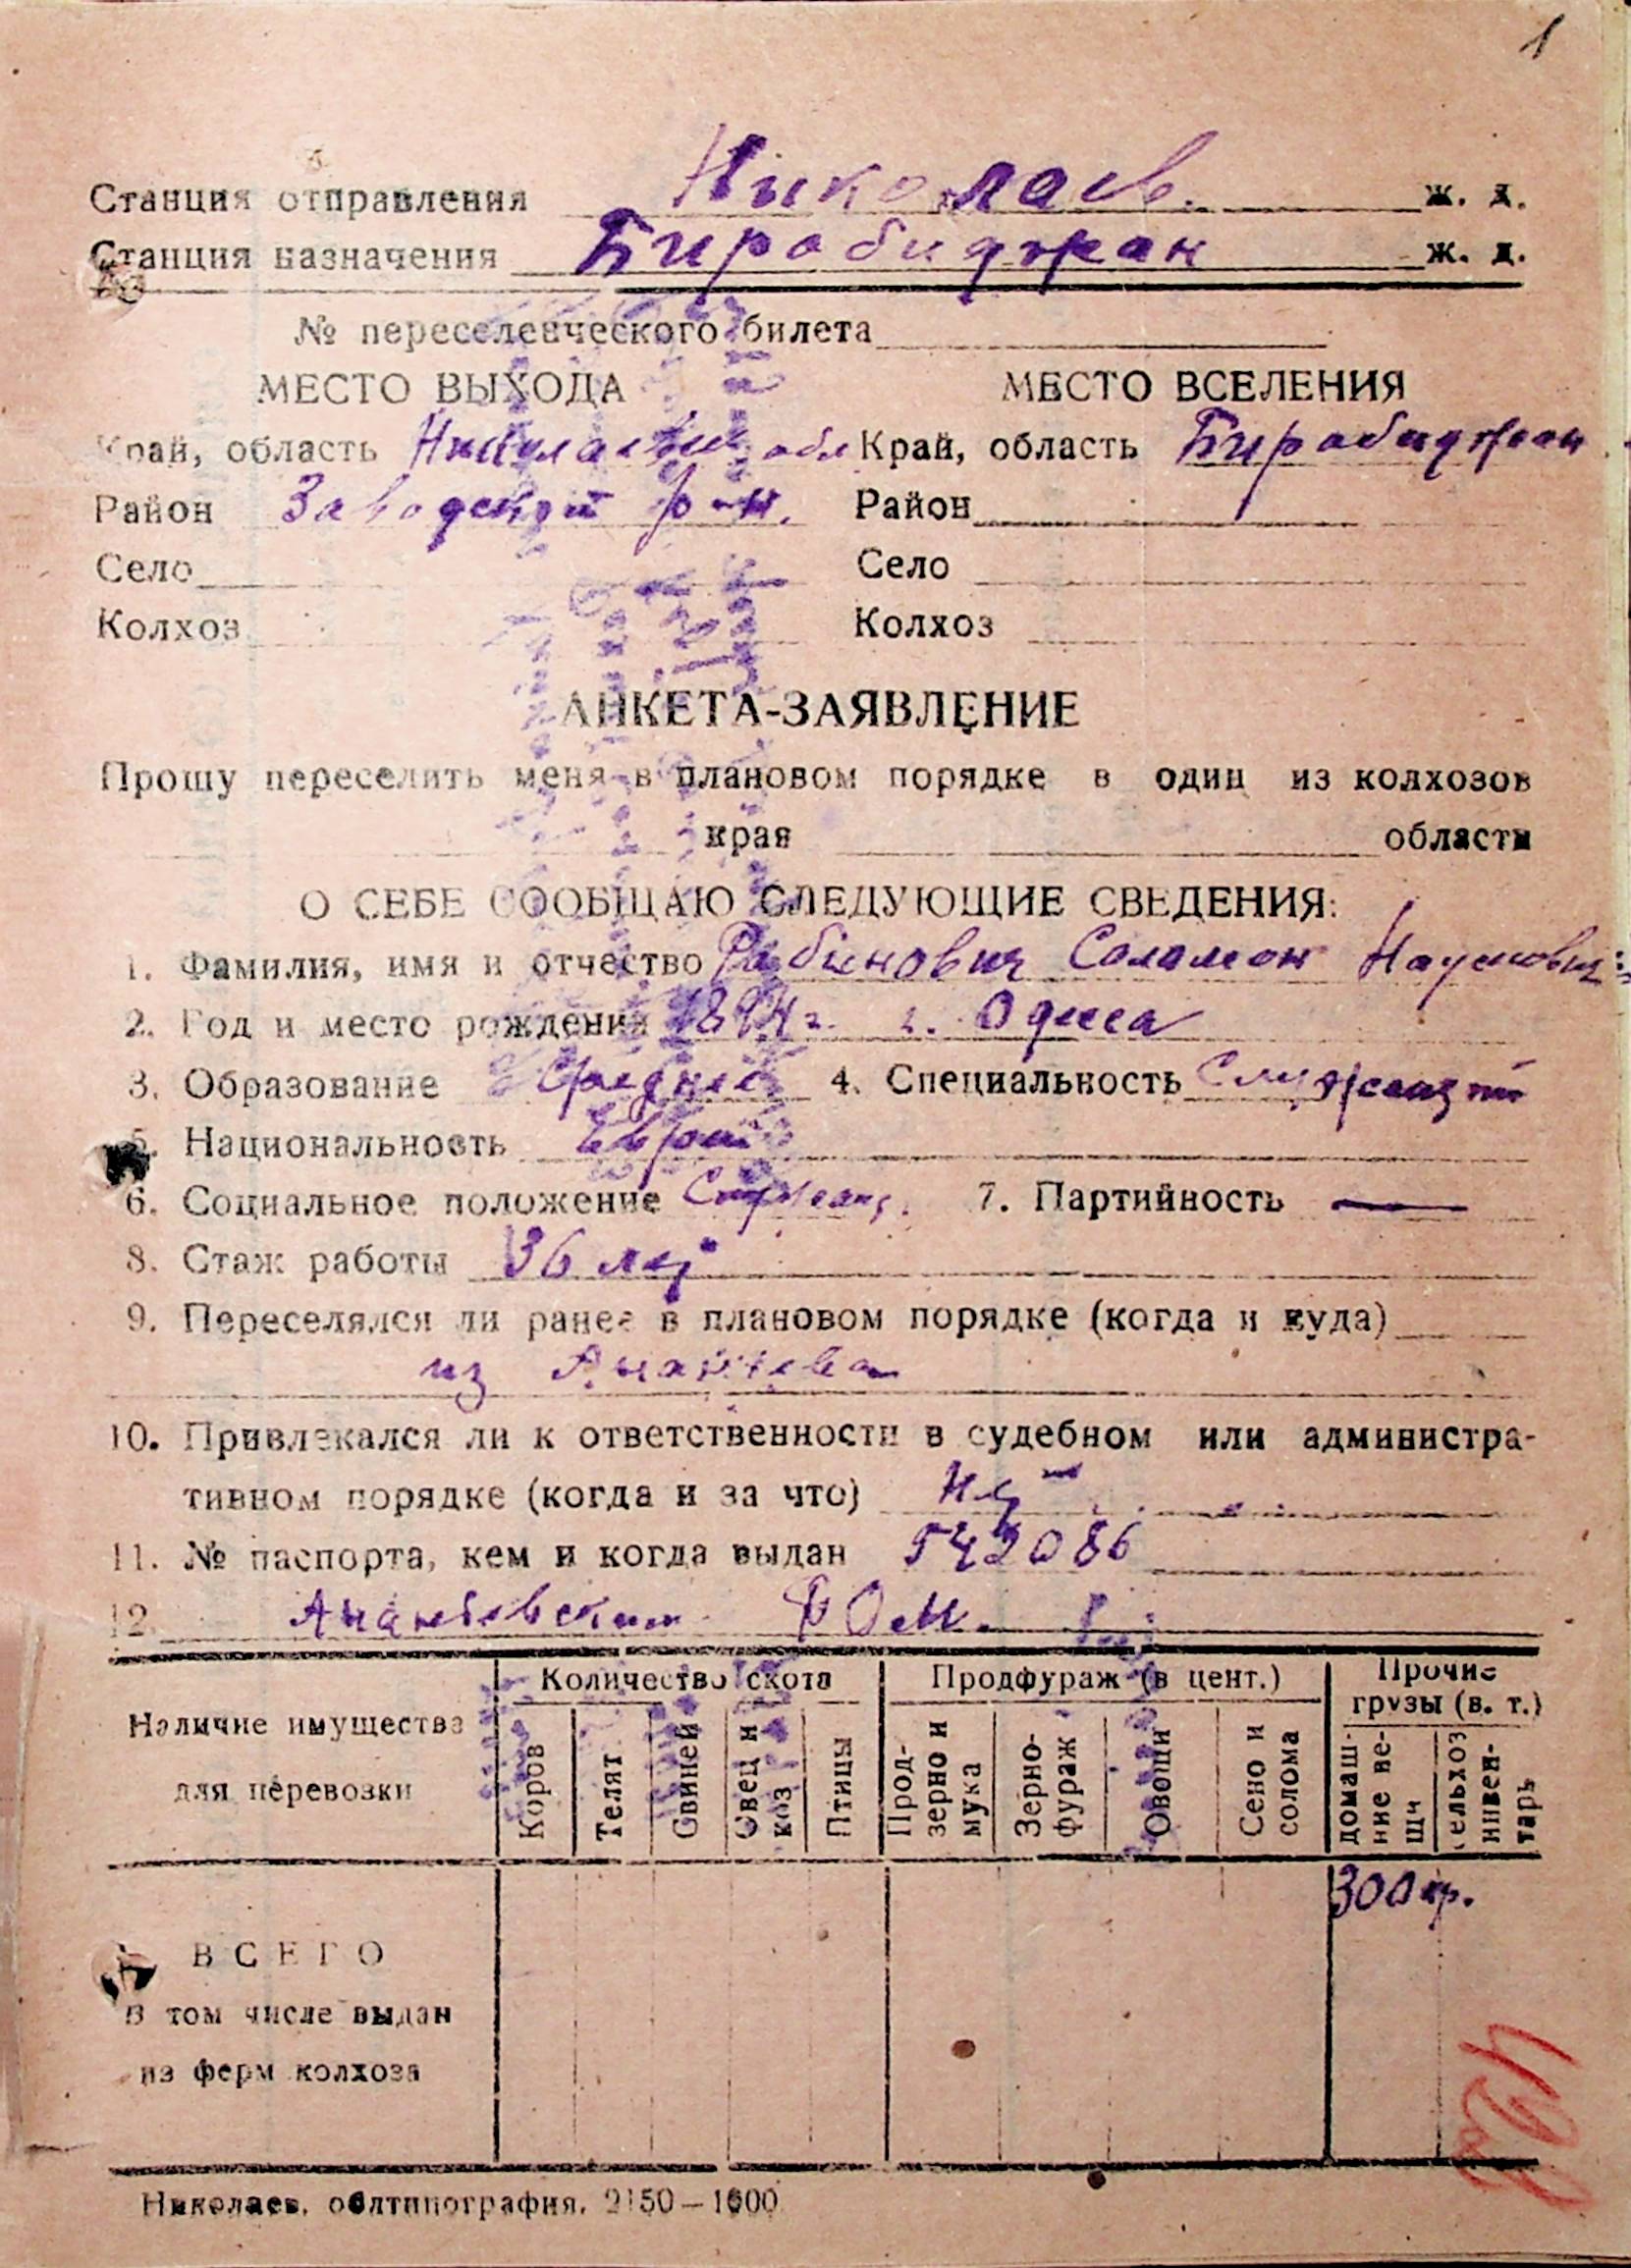 1
Станция отправления Николаев ж. д.
Станция назначения Биробиджан ж. д.
№ переселенческого билета
МЕСТО ВЫХОДА МЕСТО ВСЕЛЕНИЯ
Край, область обл Край, область Биробиджан
Район Заводской р-н. Район
Село Село
Колхоз Колхоз
АНКЕТА-ЗАЯВЛЕНИЕ
Прошу переселить меня в плановом порядке в один из колхозов
края области
О СЕБЕ СООБЩАЮ СЛЕДУЮЩИЕ СВЕДЕНИЯ:
1. Фамилия, имя и отчество Рабинович Соломон Наумович
2. Год и место рождения 1894 г. г. Одесса
3. Образование Среднее 4. Специальность Служащий
5. Национальность Еврей
6. Социальное положение Служащ. 7. Партийность —
8. Стаж работы 36 лет
9. Переселялся ли ранее в плановом порядке (когда и куда)
из Ананьева
10. Привлекался ли к ответственности в судебном или администра-
тивном порядке (когда и за что) Нет
11. № паспорта, кем и когда выдан 542086
12. Ананьевским РОМ.
Наличие имущества для перевозки
Количество скота
Коров
Телят
Свиней
Овец и коз
Птицы
Продфураж (в цент.)
Прод-зерно и мука
Зерно-фураж
Овощи
Сено и солома
Прочие грузы (в. т.)
домаш-ние ве-щи
сельхоз инвен-тарь
300 кр.
ВСЕГО
В том числе выдан
из ферм колхоза
Николаев, облтипография. 2150—1600